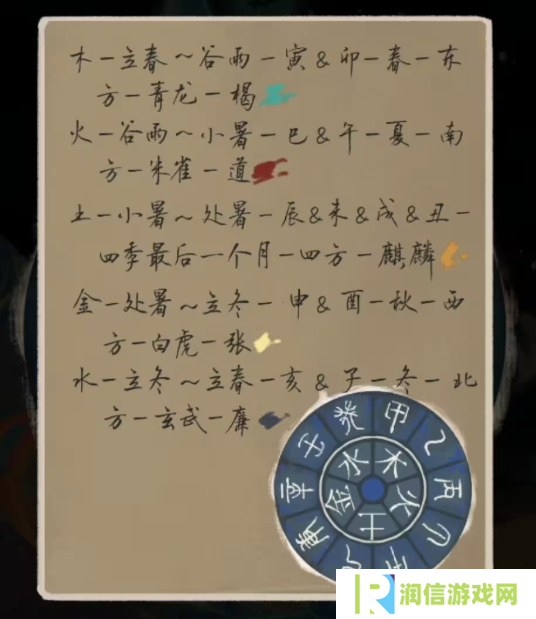 木一立春～谷雨一寅&卯一春一东
方一青龙一楬
火一谷雨～小暑一巳&午一夏一南
方一朱雀一道
土一小暑～处暑一辰&未&戌&丑一
四季最后一个月一四方一麒麟
金一处暑～立冬一申&酉一秋一西
方一白虎一张
水一立冬～立春一亥&子一冬一北
方一玄武一廉
癸 甲 乙 丙
壬 辛
水 木 火 土 金
润信游戏网